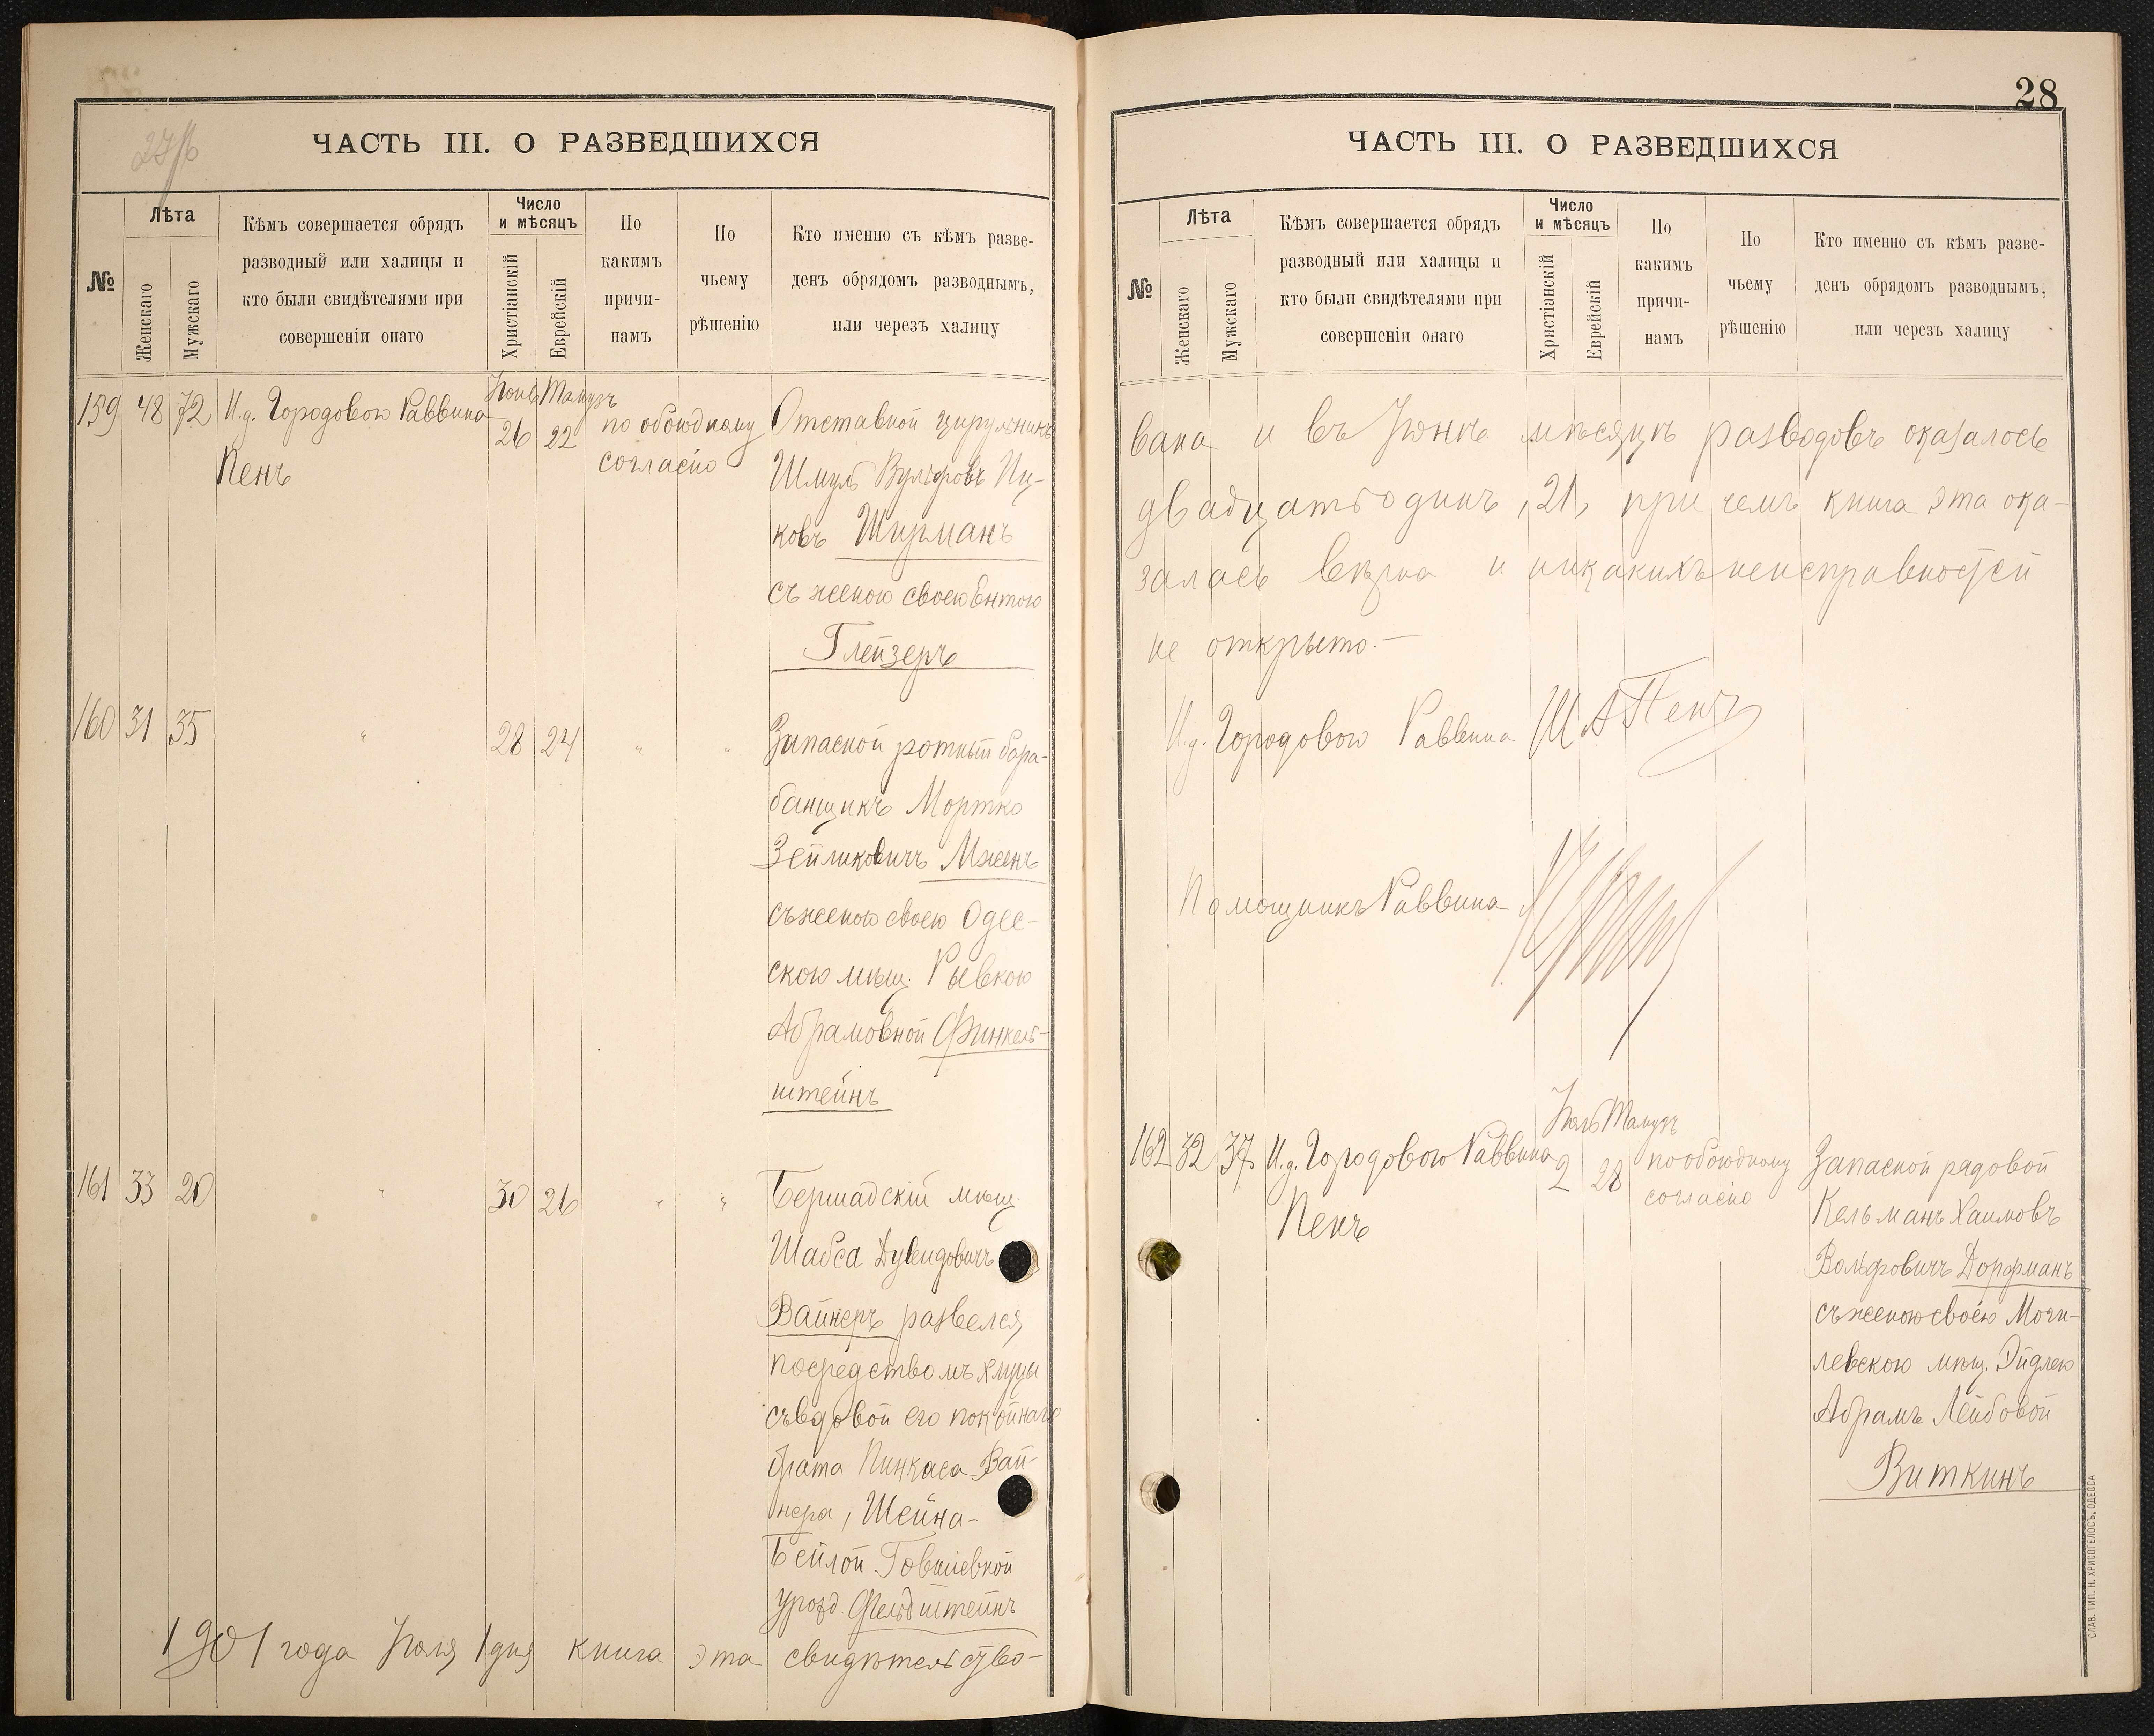 27/б
ЧАСТЬ III. О РАЗВЕДШИХСЯ
№
Лѣта
Женскаго
Мужскаго
Кѣмъ совершается обрядъ
разводный или халицы и
кто были свидѣтелями при
совершеніи онаго
Число
и мѣсяцъ
Христіанскій
Еврейскій
По
какимъ
причи-
намъ
По
чьему
рѣшенію
Кто именно съ кѣмъ разве-
денъ обрядомъ разводнымъ,
или черезъ халицу
159 48 72 И.д. Городового Раввина
Пенъ
Іюнь Тамузъ
26 22
по обоюдному
согласію
Отставной цирульникъ
Шмуль Вульфовъ Иц-
ковъ Шурманъ
съ женою своею Ентою
Глейзеръ
160 31 35 " 28 24 " "
Запасной ротный бара-
банщикъ Мортко
Зейликовичъ Мженъ
съ женою своею Одес-
скою мѣщ. Рывкою
Абрамовной Финкель-
штейнъ
161 33 20 " 30 26 " "
Бершадскій мѣщ.
Шабса Дувидовичъ
Вайнеръ развелся
посредствомъ хлуцы
съ вдовой его покойнаго
брата Пинкаса Вай-
нера, Шейна-
Бейлой Говшіевной
урожд. Фельдштейнъ
1901 года Іюля 1 дня книга эта свидѣтельство-
28
ЧАСТЬ III. О РАЗВЕДШИХСЯ
№
Лѣта
Женскаго
Мужскаго
Кѣмъ совершается обрядъ
разводный или халицы и
кто были свидѣтелями при
совершеніи онаго
Число
и мѣсяцъ
Христіанскій
Еврейскій
По
какимъ
причи-
намъ
По
чьему
рѣшенію
Кто именно съ кѣмъ разве-
денъ обрядомъ разводнымъ,
или черезъ халицу
вана и въ Іюнѣ мѣсяцѣ разводовъ оказалось
двадцать одинъ, 21, при чемъ книга эта ока-
залась вѣрна и никакихъ неисправностей
не открыто.—
И.д. Городового Раввина Ш А Пенъ
Помощникъ Раввина
162 32 37 И.д. Городового Раввина
Пенъ
Іюль Тамузъ
2 28
по обоюдному
согласію
Запасной рядовой
Кельманъ Хаимовъ
Вольфовичъ Дорфманъ
съ женою своею Моги-
левскою мѣщ. Эйдлею
Абрамъ Лейбовой
Виткинъ
СЛАВ. ТИП. Н. ХРИСОГЕЛОСЪ, ОДЕССА